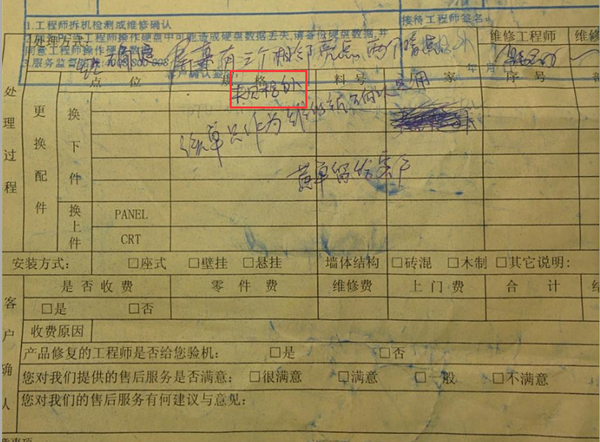 1.工程师拆机检测或维修确认
接待工程师签名:
2.工程师操作硬盘中可能造成硬盘数据丢失,请备份硬盘数据,并
同意工程师操作硬盘
3.服务监督
客户确认签
年 月
处理方式:
屏幕有三个相邻亮点 两个暗点
维修工程师
维修
处理过程
更换配件
点位
规格
料号
厂家
序号
换下件
未超规格外
该单只作为维修站确认使用
黄单留给客户
换上件
PANEL
CRT
安装方式: □座式 □壁挂 □悬挂 墙体结构 □砖混 □木制 □其它说明:
客户确认
是否收费 零件费 维修费 上门费 合计
□是 □否
收费原因
产品修复的工程师是否给您验机: □是 □否
您对我们提供的售后服务是否满意: □很满意 □满意 □一般 □不满意
您对我们的售后服务有何建议与意见: